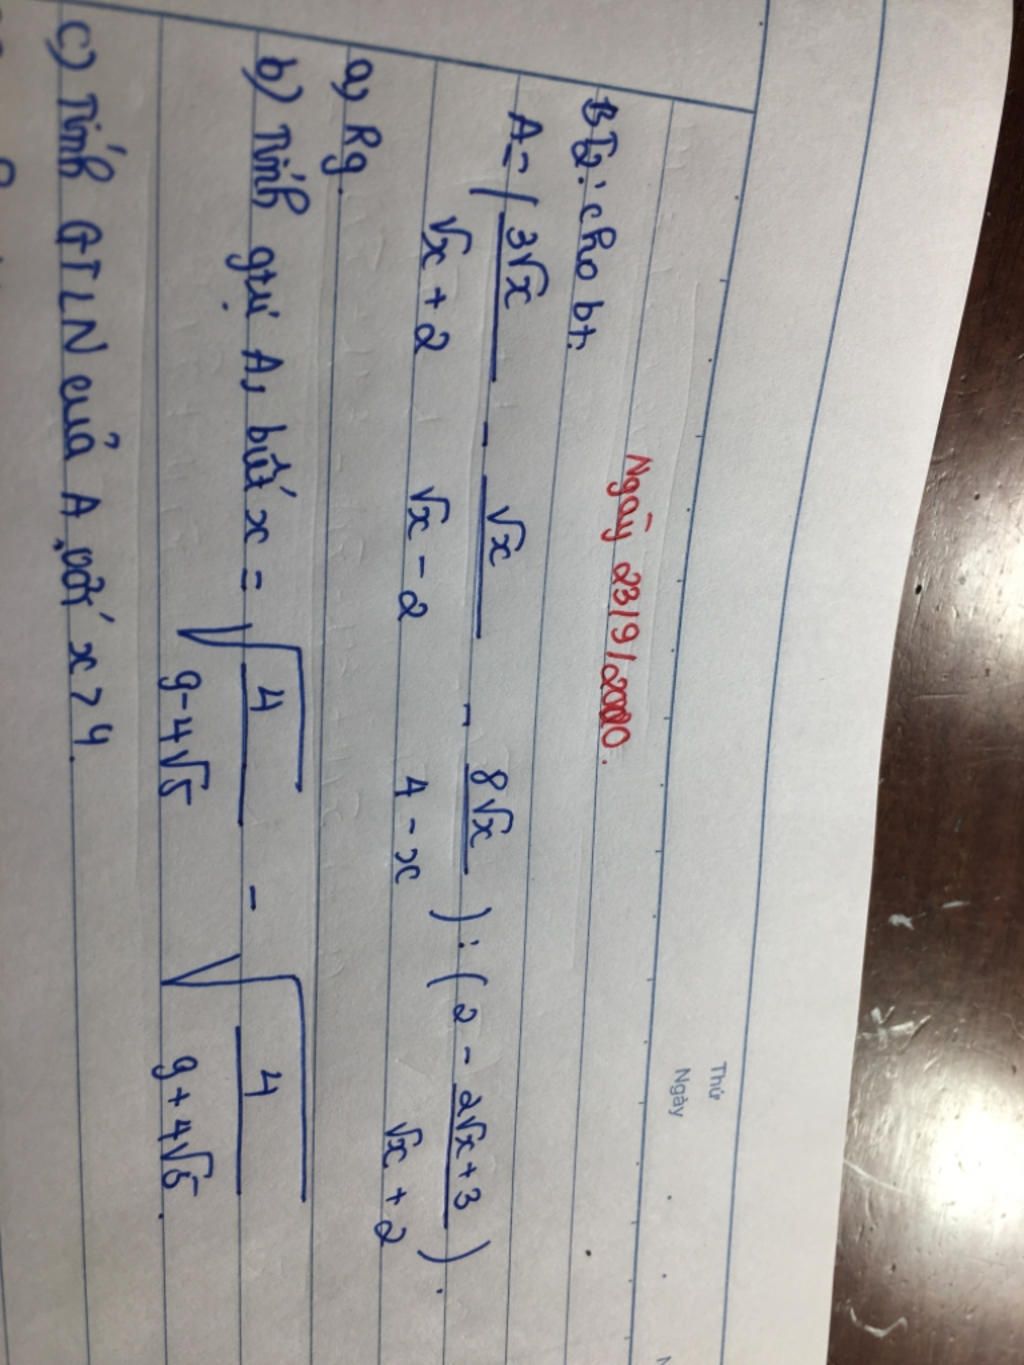 Thứ
Ngày
Ngày 23/9/2020.
BT2: cho bt:
A = ( 3√x / √x + 2 - √x / √x - 2 - 8√x / 4 - x ) : ( 2 - 2√x + 3 / √x + 2 ).
a) Rg.
b) Tính gtrị A, biết x = √(4 / 9 - 4√5) - √(4 / 9 + 4√5).
c) Tính GTLN của A với x > 4.